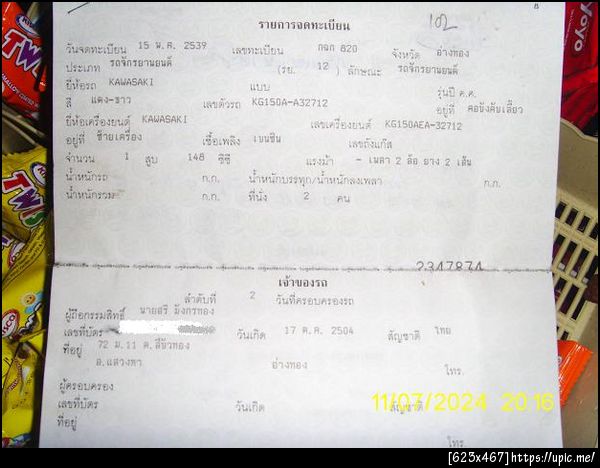 รายการจดทะเบียน
102
วันจดทะเบียน 15 พ.ค. 2539 เลขทะเบียน กฉก 820 จังหวัด อ่างทอง
ประเภท รถจักรยานยนต์ (รย. 12 ) ลักษณะ รถจักรยานยนต์
ยี่ห้อรถ KAWASAKI แบบ รุ่นปี ค.ศ.
สี แดง-ขาว เลขตัวรถ KG150A-A32712 อยู่ที่ คอบังคับเลี้ยว
ยี่ห้อเครื่องยนต์ KAWASAKI เลขเครื่องยนต์ KG150AEA-32712
อยู่ที่ ซ้ายเครื่อง เชื้อเพลิง เบนซิน เลขถังแก๊ส
จำนวน 1 สูบ 148 ซีซี แรงม้า - เพลา 2 ล้อ ยาง 2 เส้น
น้ำหนักรถ ก.ก. น้ำหนักบรรทุก/น้ำหนักลงเพลา ก.ก.
น้ำหนักรวม ก.ก. ที่นั่ง 2 คน
2347874
เจ้าของรถ
ลำดับที่ 2 วันที่ครอบครองรถ
ผู้ถือกรรมสิทธิ์ นายสรี มังกรทอง
เลขที่บัตร วันเกิด 17 ต.ค. 2504 สัญชาติ ไทย
ที่อยู่ 72 ม.11 ต.สีบัวทอง
อ.แสวงหา อ่างทอง โทร.
ผู้ครอบครอง
เลขที่บัตร วันเกิด สัญชาติ
ที่อยู่
โทร.
11/07/2024 20:16
[623x467]https://upic.me/
TWIS
TWIS
YoYo